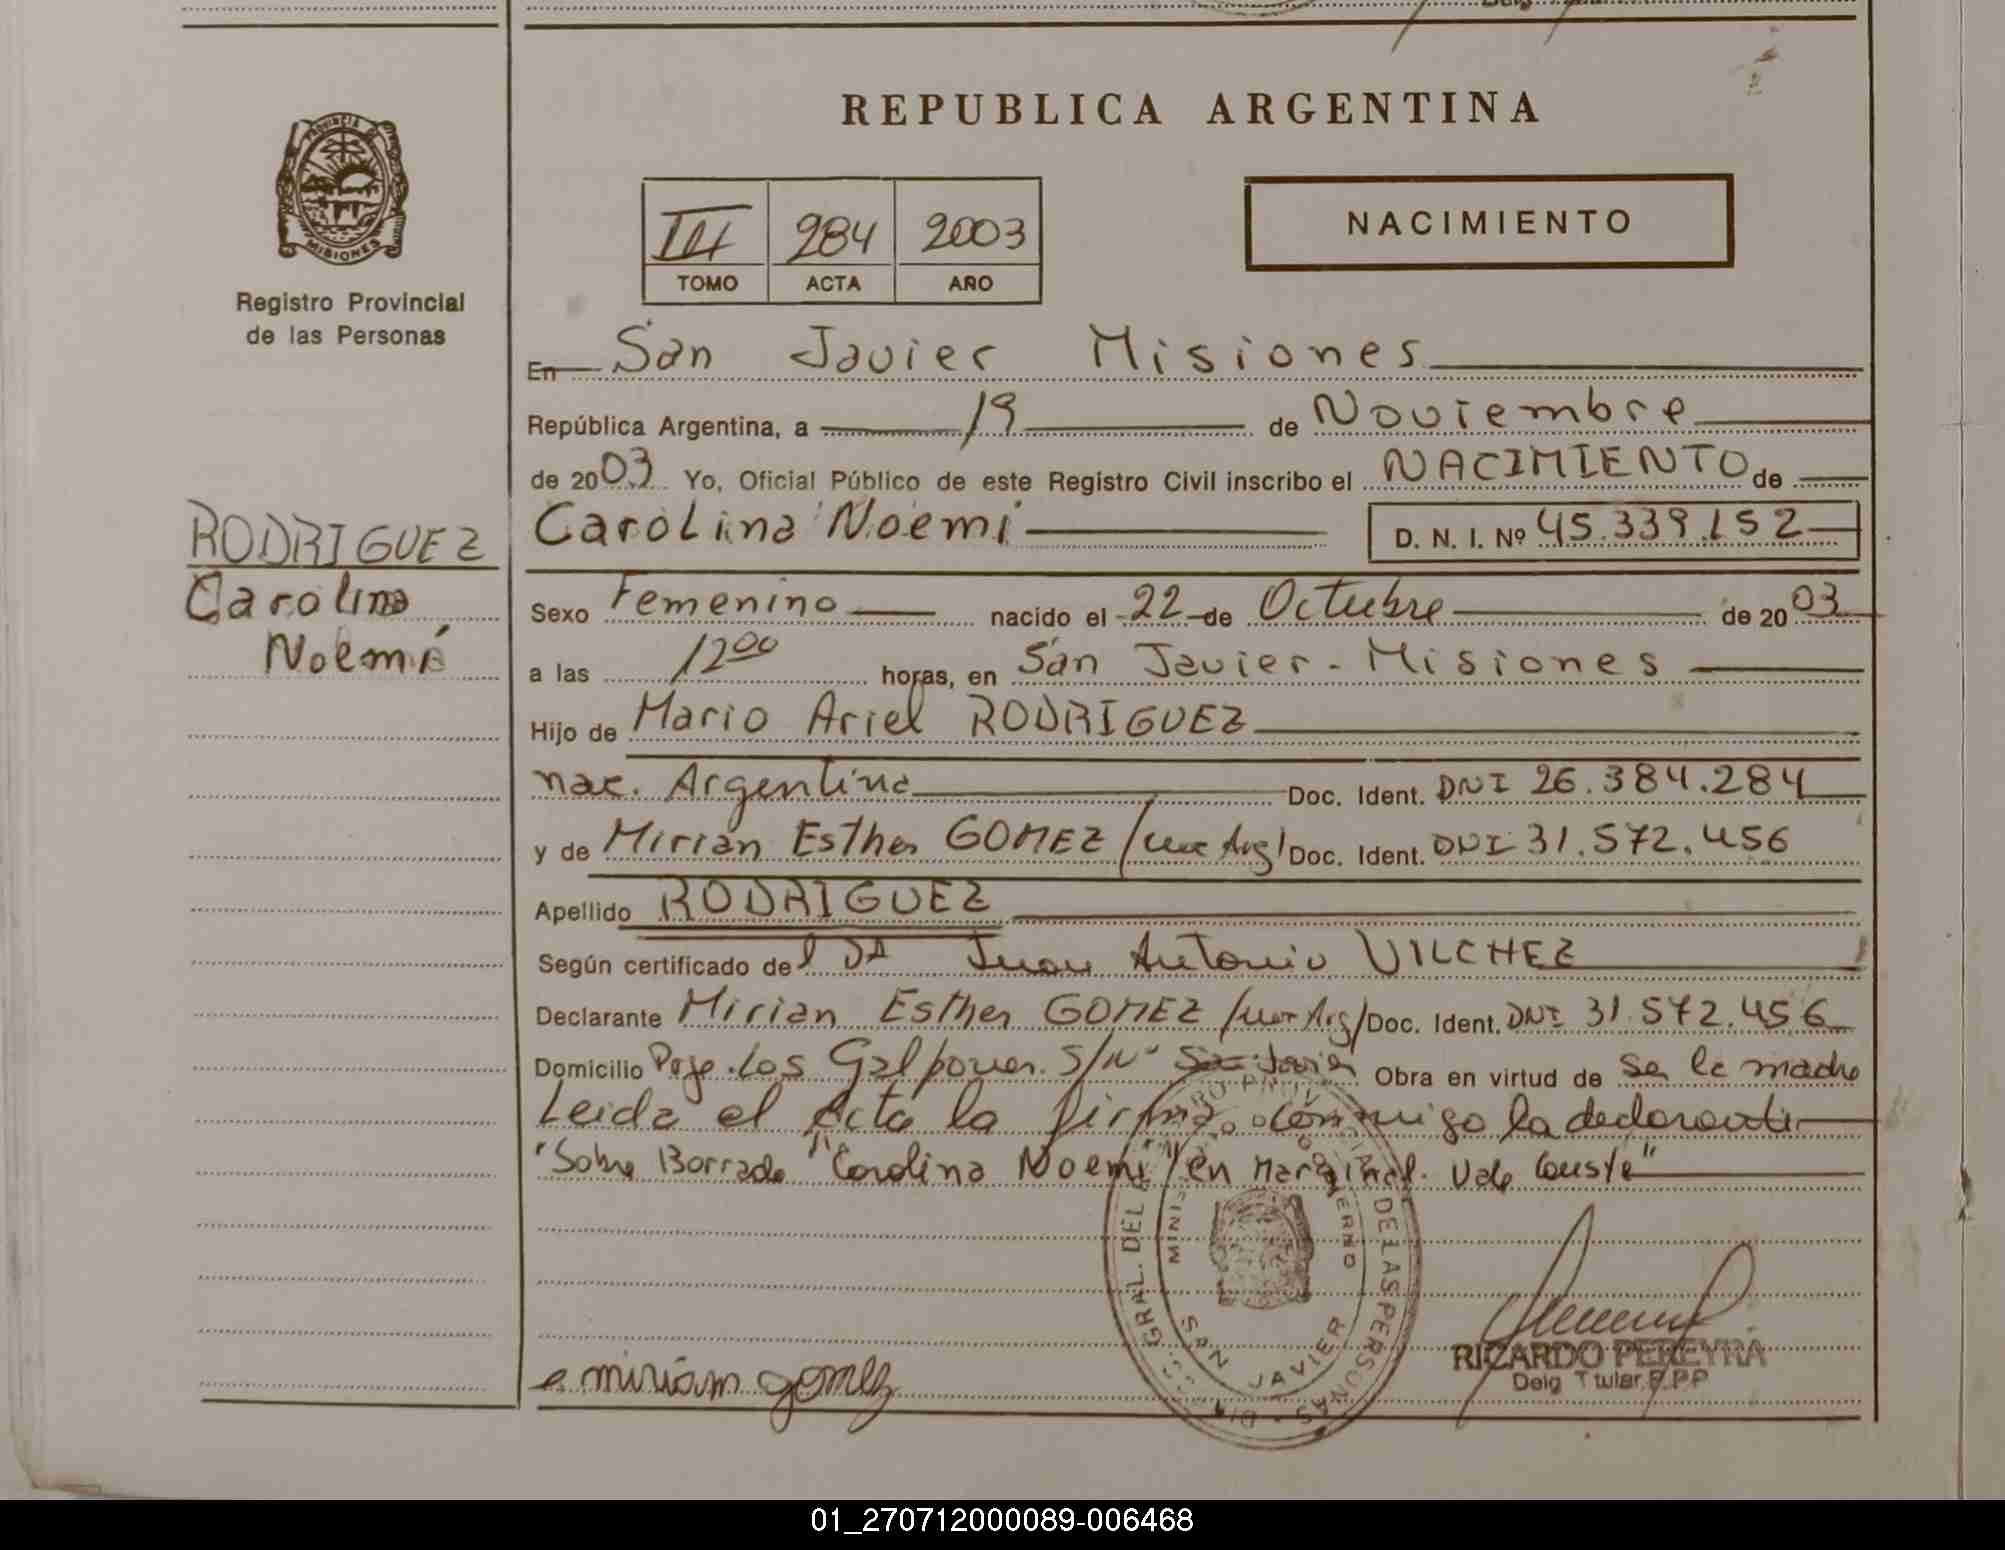 REPUBLICA ARGENTINA
PROVINCIA D
MISIONES
Registro Provincial
de las Personas
III 284 2003
TOMO ACTA AÑO
NACIMIENTO
En San Javier Misiones
República Argentina, a 19 de Noviembre
de 2003 Yo, Oficial Público de este Registro Civil inscribo el NACIMIENTO de
Carolina Noemi D. N. I. Nº 45.339.152
RODRIGUEZ
Carolina
Noemí
Sexo Femenino nacido el 22 de Octubre de 2003
a las 12 00 horas, en San Javier - Misiones
Hijo de Mario Ariel RODRIGUEZ
nac. Argentina Doc. Ident. DNI 26.384.284
y de Mirian Esther GOMEZ /nac Arg/ Doc. Ident. DNI 31.572.456
Apellido RODRIGUEZ
Según certificado del DR Juan Antonio VILCHEZ
Declarante Mirian Esther GOMEZ /nac Arg/ Doc. Ident. DNI 31.572.456
Domicilio Pje. Los Galpones S/Nº San Javier Obra en virtud de ser la madre
Leida el Acta la firma conmigo la declarante
"Sobre Borrado "Carolina Noemi" en Marginal. Vale Conste"
MINIS GOBIERNO
SAN JAVIER
GRAL. DEL DE LAS PERSONAS
miriam gomez
RICARDO PEREYRA
Delg Titular R.P.P
01_270712000089-006468